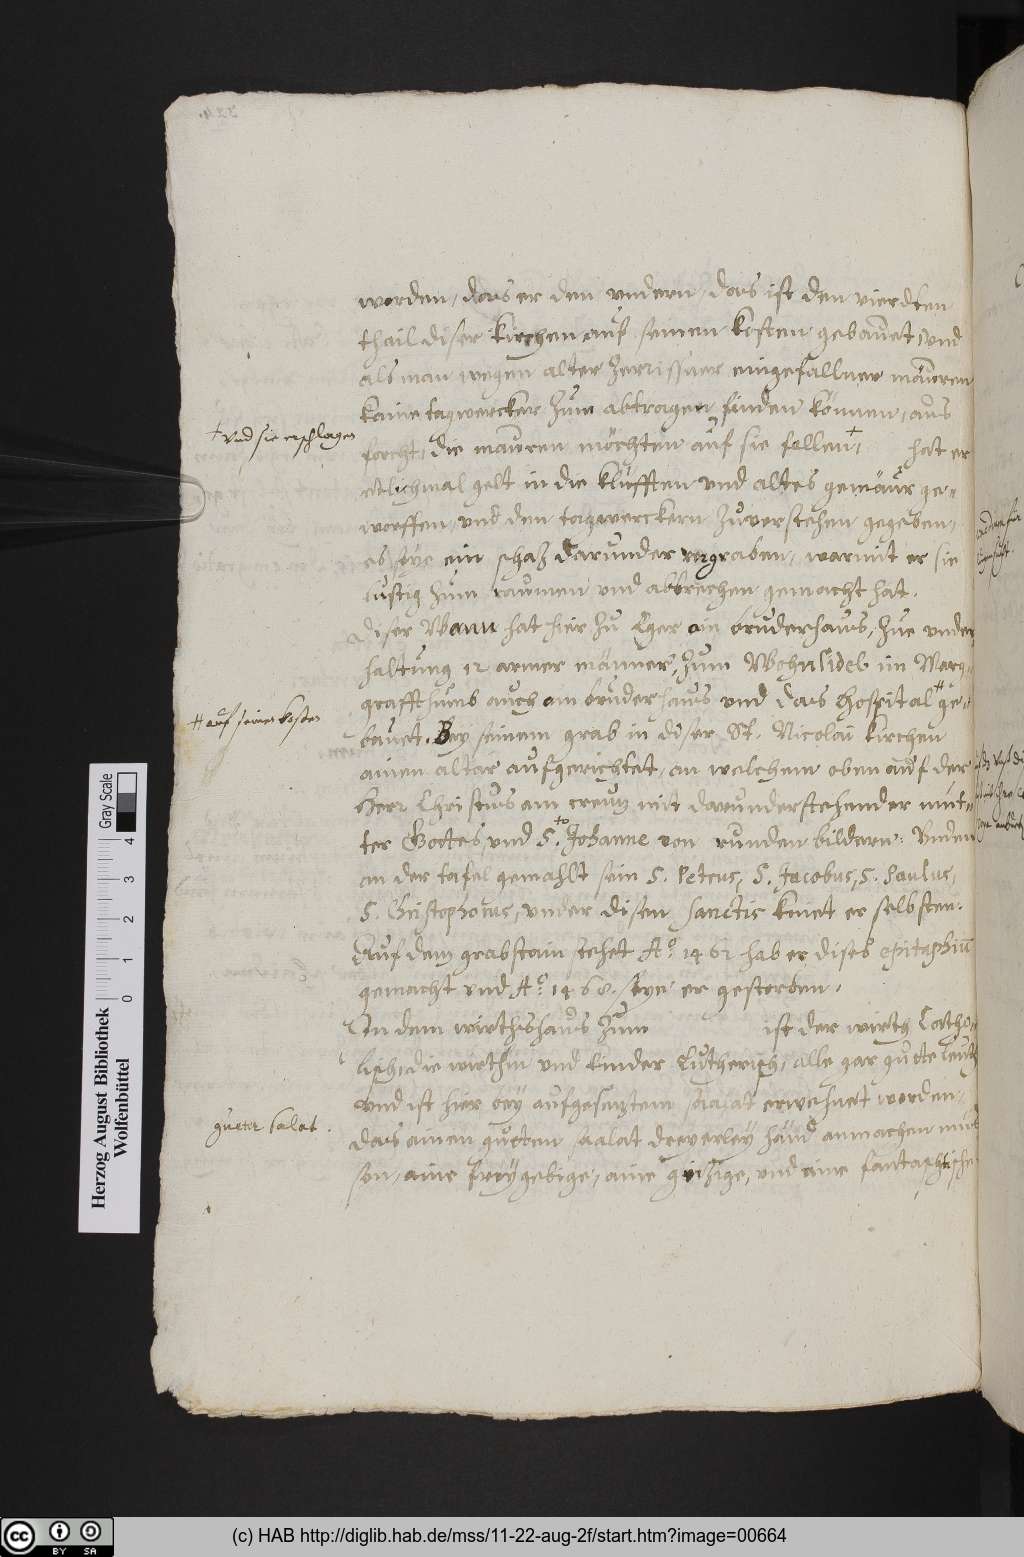 worden, das er den undern, das ist den vierdten
thail diser Kirchen auf seinen kosten gebauet, und
als man wegen alter zerrissner eingefallner mauren
kaine tagwercker zum abtragen finden können, aus
forcht, die mauren möchten auf sie fallen, + hat er
+ und sie erschlagen
etlichmal gelt in die klufften und altes gemäur ge-
worffen, und den tagwerckern zuverstehen gegeben,
ob seye ein schaz darunder vergraben, warmit er sie
lustig zum raumen und abbrechen gemacht hat.
Diser Wann hat hier zu Eger ain bruderhaus, zue under
haltung 12 armer männer, zum Wohnsidel im Marg-
graffthumb auch ain bruderhaus und das Hospital # ge-
# auf seinen kosten
bauet. Bey seinem grab in diser St. Nicolai kirchen
ainen altar aufgerichtet, an welchem oben auf der
Herr Christus am creuz mit darunderstehender mut-
ter Gottes und S.to Johanne von runden bildern: Unden
an der tafel gemahlt sein S. Petrus, S. Jacobus, S. Paulus,
S. Christophorus, under disen sanctis kniet er selbsten.
Auf dem grabstain stehet Ao. 1462 hab er dises epitaphiū
gemacht und Ao. 1468. seye er gestorben.
In dem wirthshaus zum ist der wirth Catho-
lisch, die wirthin und kinder Lutherisch, alle gar gutte leuth
und ist hier bey aufgeseztem saalat erwehnet worden,
gueter salat.
das ainen gutten saalat dreyerley händ anmachen mues
sen, aine freygebige, aine geizige, und aine fantastische
Gray Scale
Herzog August Bibliothek
Wolfenbüttel
0 1 2 3 4
cc BY SA
(c) HAB http://diglib.hab.de/mss/11-22-aug-2f/start.htm?image=00664